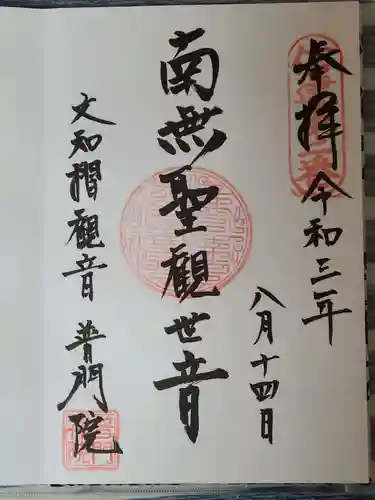 奉拝 令和三年
八月十四日
南無聖觀世音
文知摺觀音 普門院